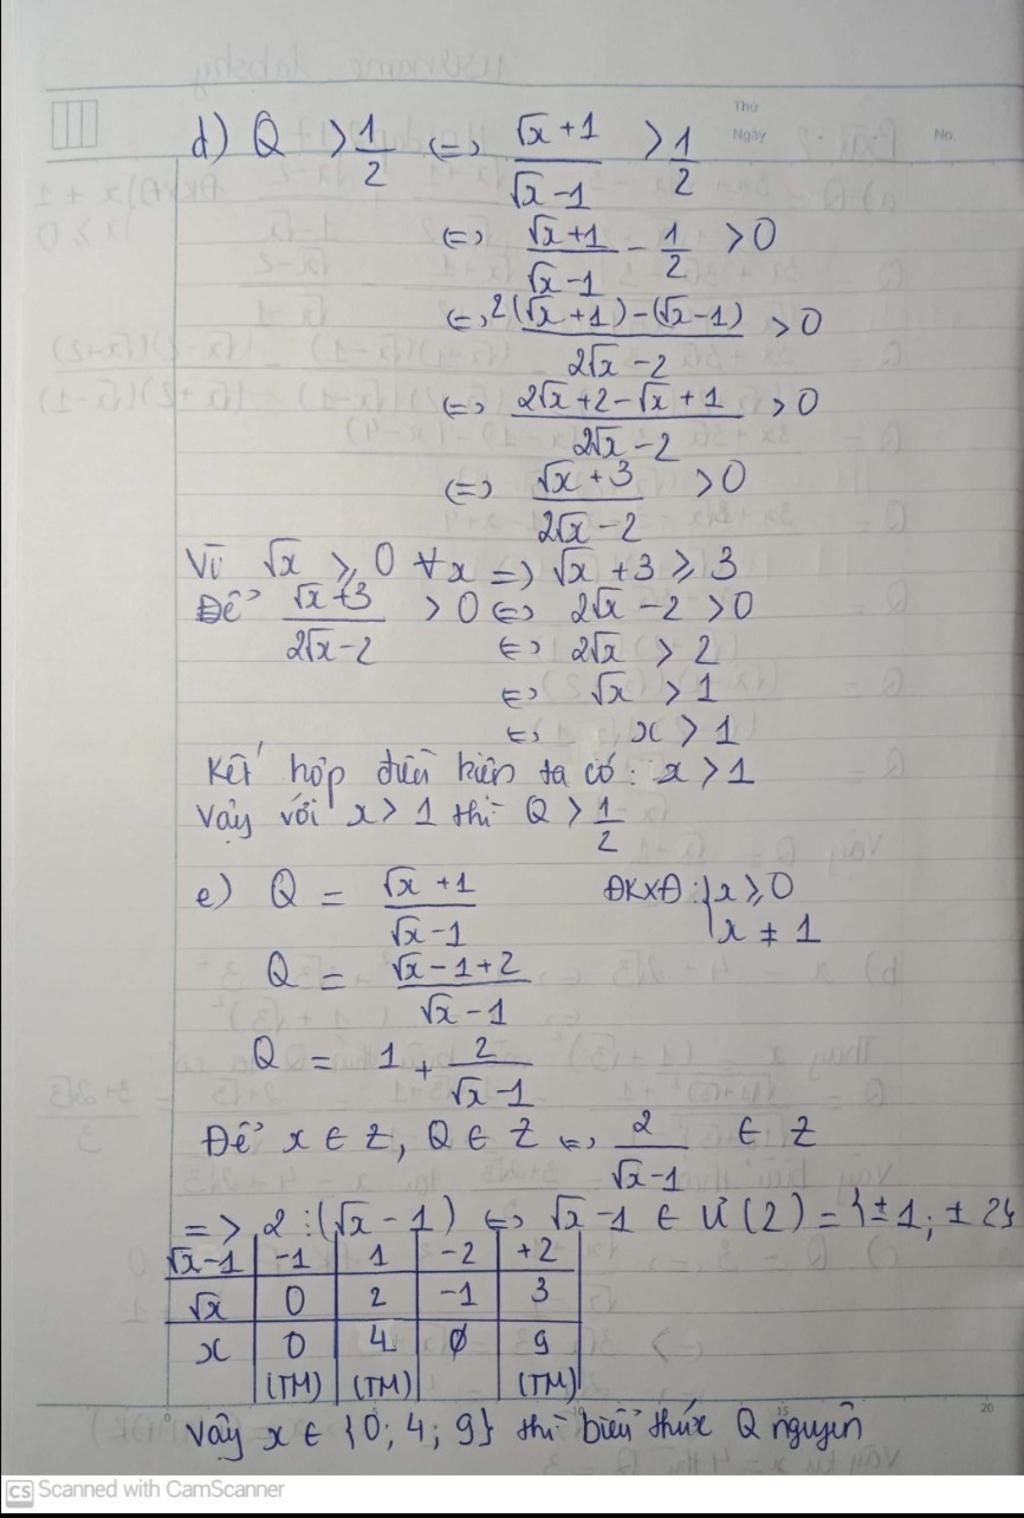 Thứ
Ngày No.
d) Q > 1/2 <=> (√x + 1)/(√x - 1) > 1/2
<=> (√x + 1)/(√x - 1) - 1/2 > 0
<=> (2(√x + 1) - (√x - 1))/(2√x - 2) > 0
<=> (2√x + 2 - √x + 1)/(2√x - 2) > 0
<=> (√x + 3)/(2√x - 2) > 0
Vì √x ⩾ 0 ∀x => √x + 3 ⩾ 3
Để (√x + 3)/(2√x - 2) > 0 <=> 2√x - 2 > 0
<=> 2√x > 2
<=> √x > 1
<=> x > 1
Kết hợp điều kiện ta có: x > 1
Vậy với x > 1 thì Q > 1/2
e) Q = (√x + 1)/(√x - 1) ĐKXĐ: { x ⩾ 0
x ≠ 1
Q = (√x - 1 + 2)/(√x - 1)
Q = 1 + 2/(√x - 1)
Để x ∈ Z, Q ∈ Z <=> 2/(√x - 1) ∈ Z
=> 2 ⋮ (√x - 1) <=> √x - 1 ∈ Ư(2) = {±1; ±2}
√x - 1 | -1 | 1 | -2 | +2
√x | 0 | 2 | -1 | 3
x | 0 | 4 | ∅ | 9
(TM) | (TM) | (TM)
Vậy x ∈ {0; 4; 9} thì biểu thức Q nguyên
CS Scanned with CamScanner